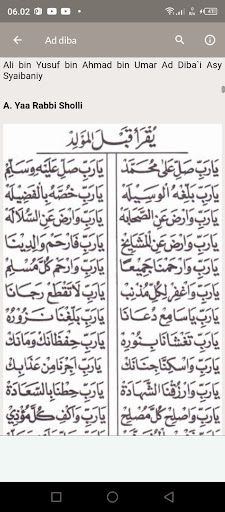 06.02
Ad diba
Ali bin Yusuf bin Ahmad bin Umar Ad Diba`i Asy
Syaibaniy
A. Yaa Rabbi Sholli
يُقْرَأُ قَبْلَ الْمَوْلِدِ
يَارَبِّ صَلِّ عَلَى مُحَمَّدْ يَارَبِّ صَلِّ عَلَيْهِ وَسَلِّمْ
يَارَبِّ بَلِّغْهُ الْوَسِيْلَهْ يَارَبِّ خُصَّهُ بِالْفَضِيْلَهْ
يَارَبِّ وَارْضَ عَنِ الصَّحَابَهْ يَارَبِّ وَارْضَ عَنِ السُّلَالَهْ
يَارَبِّ وَارْضَ عَنِ الْمَشَايِخْ يَارَبِّ فَارْحَمْ وَالِدِيْنَا
يَارَبِّ وَارْحَمْنَا جَمِيْعًا يَارَبِّ وَارْحَمْ كُلَّ مُسْلِمْ
يَارَبِّ وَاغْفِرْ لِكُلِّ مُذْنِبْ يَارَبِّ لَاتَقْطَعْ رَجَانَا
يَارَبِّ يَاسَامِعْ دُعَانَا يَارَبِّ بَلِّغْنَا نَزُوْرُهْ
يَارَبِّ تَغْشَانَا بِنُوْرِهْ يَارَبِّ حِفْظَانَكْ وَأَمَانَكْ
يَارَبِّ وَاسْكِنَّا جِنَانَكْ يَارَبِّ أَجِرْنَا مِنْ عَذَابِكْ
يَارَبِّ وَارْزُقْنَا الشَّهَادَهْ يَارَبِّ حِطْنَا بِالسَّعَادَهْ
يَارَبِّ وَاصْلِحْ كُلَّ مُصْلِحْ يَارَبِّ وَاكْفِ كُلَّ مُؤْذِيْ